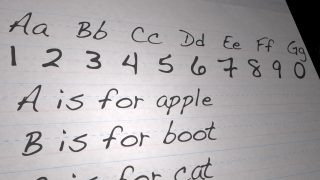 Aa Bb Cc Dd Ee Ff Gg
1 2 3 4 5 6 7 8 9 0
A is for apple
B is for boot
for cat